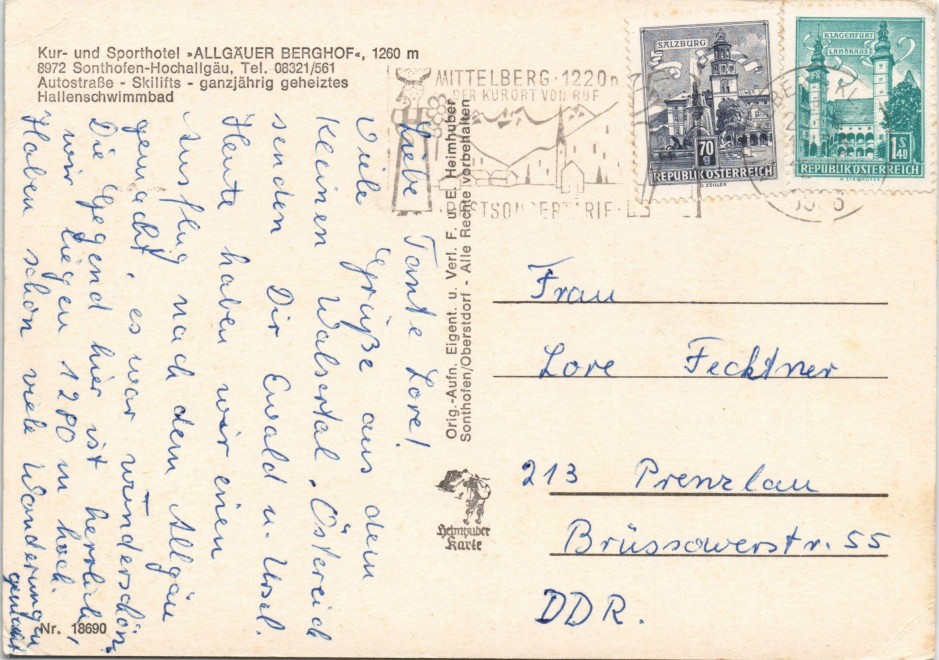 Kur- und Sporthotel »ALLGÄUER BERGHOF«, 1260 m
8972 Sonthofen-Hochallgäu, Tel. 08321/561
Autostraße - Skilifts - ganzjährig geheiztes
Hallenschwimmbad
MITTELBERG · 1220m
DER KURORT VON RUF
SALZBURG
70 g
REPUBLIK ÖSTERREICH
KLAGENFURT
LANDHAUS
1 S 40
REPUBLIK ÖSTERREICH
Liebe Tante Lore!
Viele Grüße aus dem
kleinen Walsertal, Östereich
senden Dir Ewald u. Ursel.
Heute haben wir einen
Ausflug nach dem Allgäu
gemacht, es war wunderschön.
Die Gegend hier ist herrlich,
wir liegen 1280 m hoch.
Haben schon viele Wanderungen
gemacht
Orig.-Aufn. Eigent. u. Verl. F. u. E. Heimhuber
Sonthofen/Oberstdorf - Alle Rechte vorbehalten
Heimhuber
Karte
Frau
Lore Fechtner
213 Prenzlau
Brüssowerstr. 55
DDR.
Nr. 18690